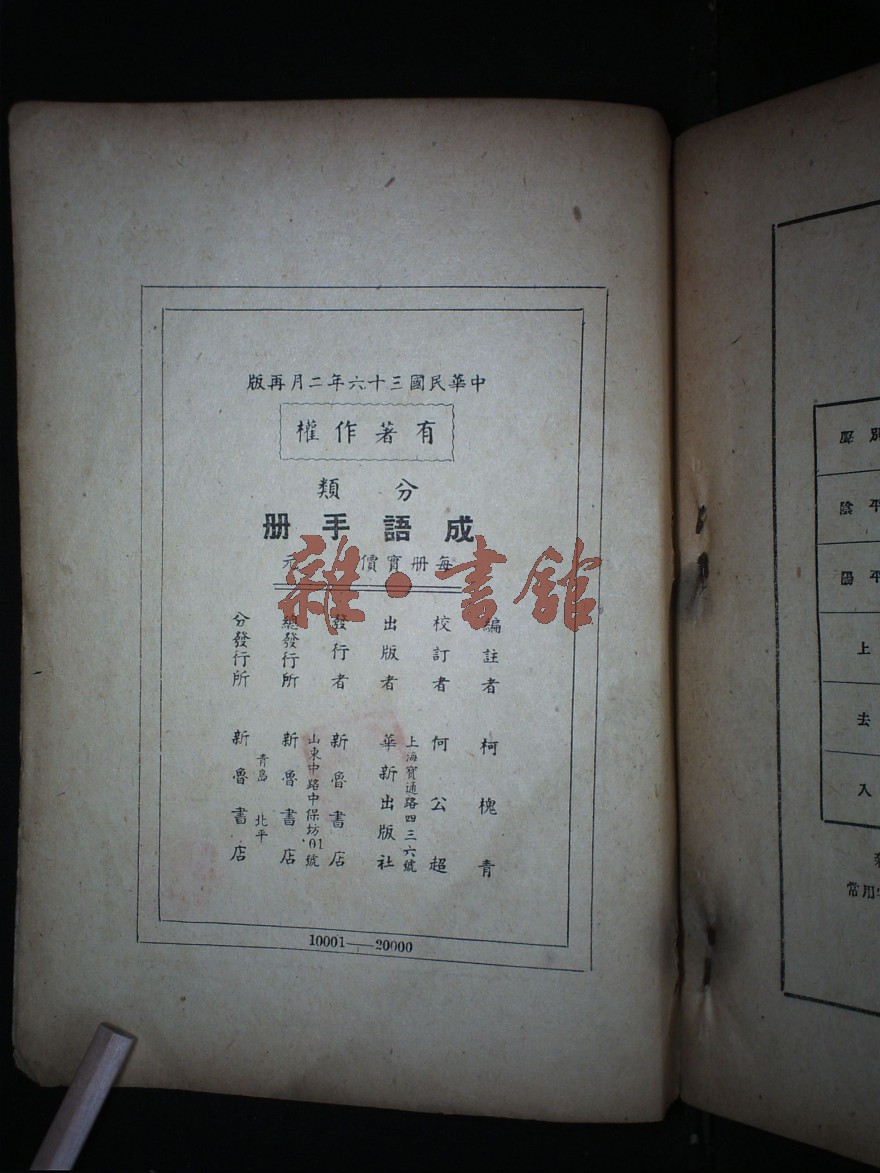 中華民國三十六年二月再版
有著作權
分類
成語手册
每册實價 元
編註者 柯槐青
校訂者 何公超
上海寶通路四三六號
出版者 華新出版社
發行者 新魯書店
山東中路中保坊 01號
總發行所 新魯書店
青島 北平
分發行所 新魯書店
10001——20000
雜·書館
陰平
陽平
上
去
入
常用